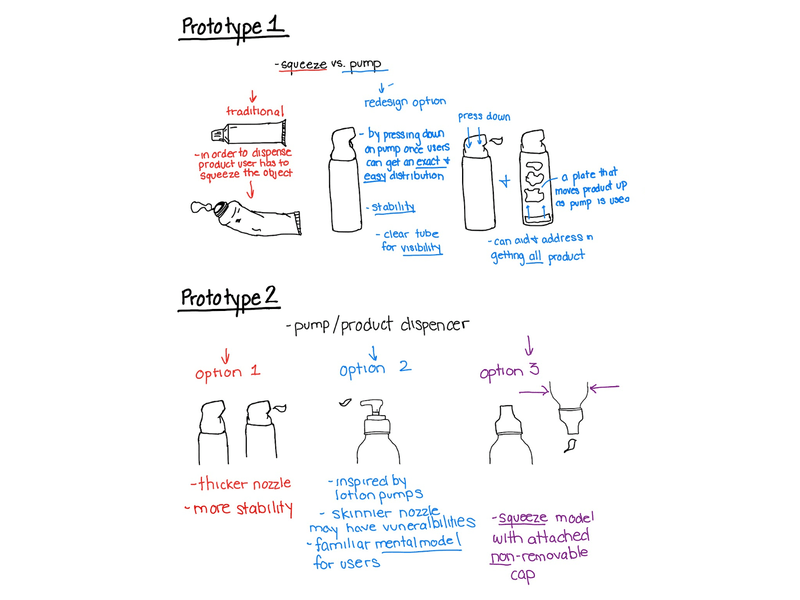 Prototype 1
-squeeze vs. pump
traditional
-in order to dispense
product user has to
squeeze the object
redesign option
-by pressing down
on pump once users
can get an exact +
easy distribution
-stability
-clear tube
for visibility
press down
+
a plate that
moves product up
as pump is used
-can aid + address in
getting all product
Prototype 2
-pump/product dispencer
option 1
-thicker nozzle
-more stability
option 2
-inspired by
lotion pumps
-skinnier nozzle
may have vuneralbilities
-familiar mental model
for users
option 3
-squeeze model
with attached
non-removable
cap